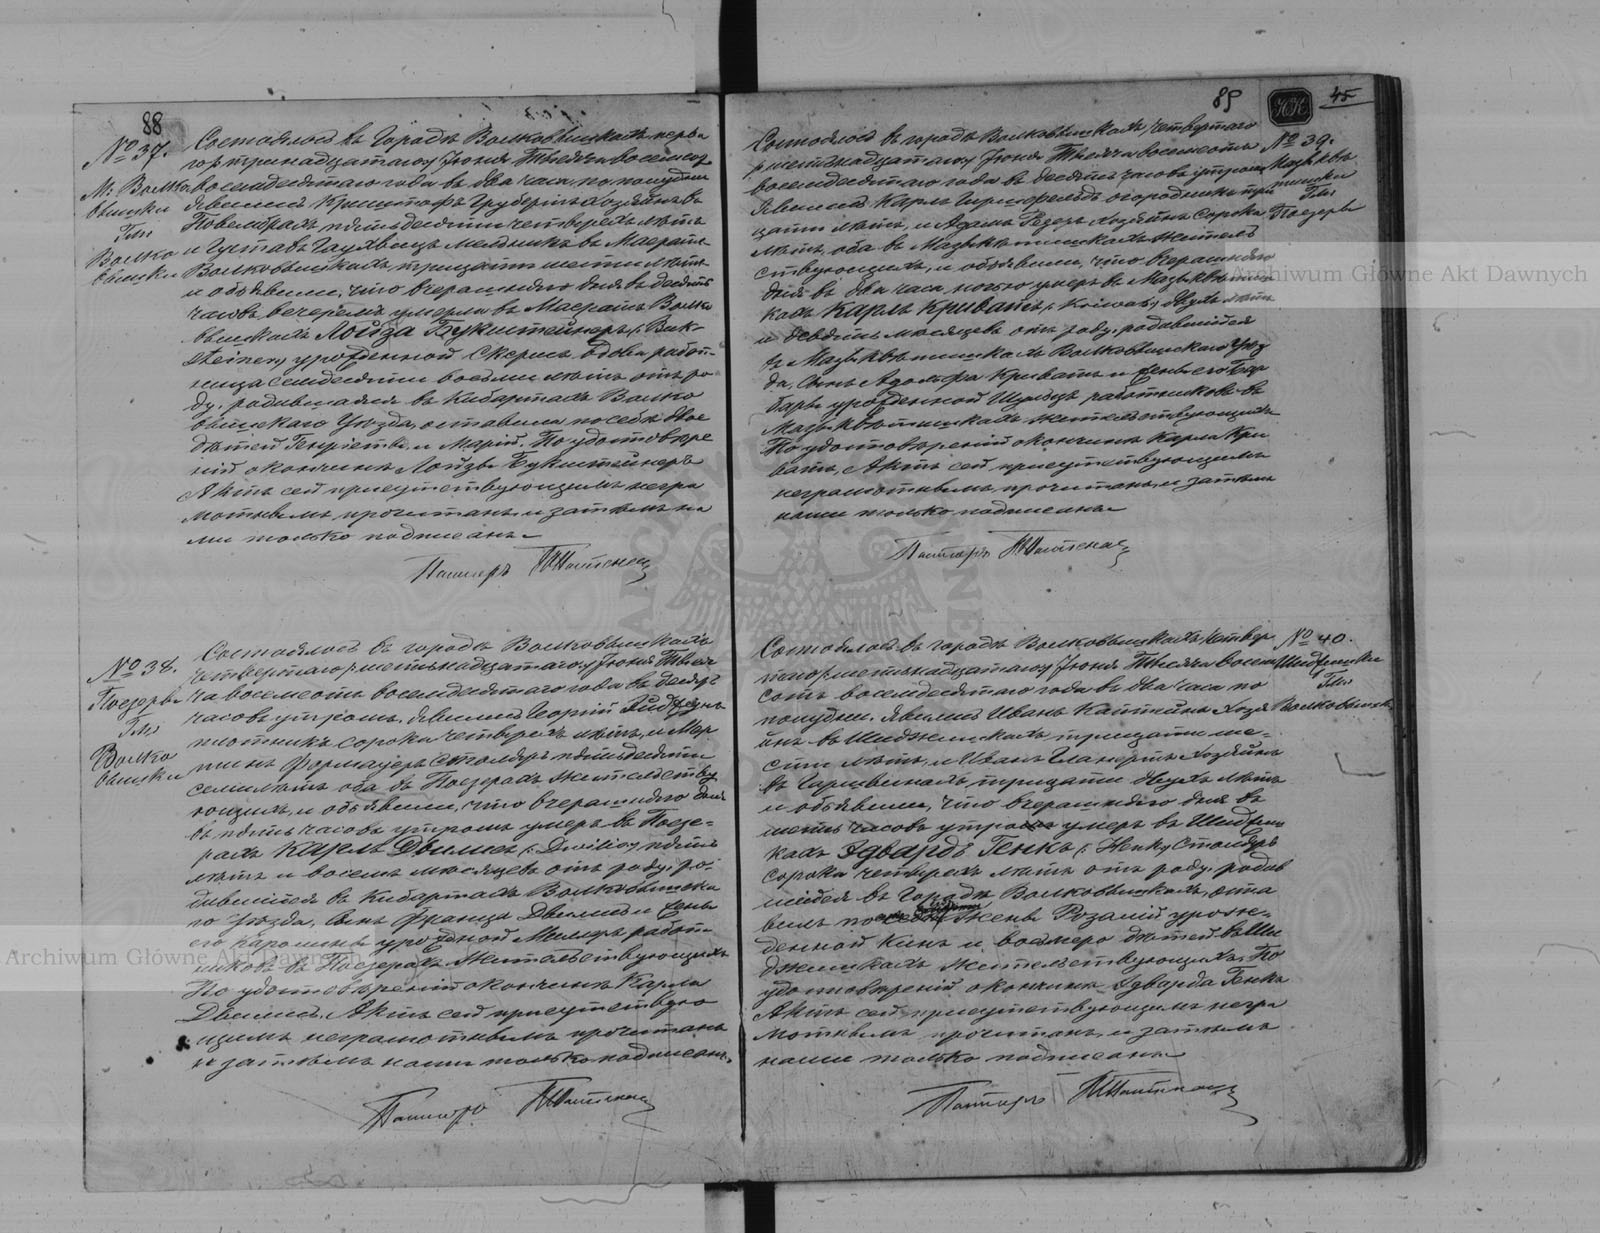 88
№ 37.
М. Волко
вышки
Гм.
Волко
вышки
Состоялось въ городѣ Волковышкахъ перва
го /: тринадцатаго :/ Іюня Тысяча восемсотъ
восемдесятаго года въ два часа по полудни
Явились Криштофъ
пятьдесяти четырехъ лѣтъ
и Густавъ мельникъ въ Маератѣ
Волковышкахъ, тридцати шести лѣтъ
и объявили, что вчерашняго дня въ десять
часовъ вечеромъ умерла въ Маератѣ Волко
вышкахъ Лоиза Букштейнеръ /: Buk-
steiner :/ урожденной вдова работ-
ница семдесяти восьми лѣтъ отъ ро-
ду, родившаяся въ Кибартахъ Волко
вышскаго Уѣзда, оставила по себѣ двое
дѣтей Генріету и Марію. По удостовѣре
ніи о кончинѣ Лоизы Букштейнеръ
Актъ сей присутствующимъ негра
мотнымъ прочитанъ и затѣмъ на
ми только подписанъ.
Пасторъ
№ 38.
Поезеры
Гм.
Волко
вышки
Состоялось въ городѣ Волковышкахъ
четвертаго /: шестьнадцатаго :/ Іюня Тыся
ча восемсотъ восемдесятаго года въ десять
часовъ утромъ. Явились Георгій
плотникъ сорока четырехъ лѣтъ, и Мар
тинъ столяръ пятьдесяти
семи лѣтъ оба въ Поезерахъ жительству
ющихъ, и объявили, что вчерашняго дня
въ пять часовъ утромъ умеръ въ Поезе-
рахъ Карлъ Двилисъ /: Dwilis :/ пяти
лѣтъ и восемь мѣсяцевъ отъ роду, ро-
дившійся въ Кибартахъ Волковышска
го Уѣзда, сынъ Франца Двилисъ и жены
его Каролины урожденной Миллеръ работ-
никовъ въ Поезерахъ жительствующихъ
По удостовѣреніи о кончинѣ Карла
Двилисъ, Актъ сей присутствую
щимъ неграмотнымъ прочитанъ
и затѣмъ нами только подписанъ.
Пасторъ
89
45
№ 39.
Гм.
Поезеры
Состоялось въ городѣ Волковышкахъ, четвертаго
/: шестьнадцатаго :/ Іюня Тысяча восемсотъ
восемдесятаго года въ десять часовъ утромъ
Явились Карлъ огородникъ трид
цати лѣтъ, и Адамъ хозяинъ сорока
лѣтъ, оба въ житель
ствующихъ, и объявили, что вчерашняго
дня въ два часа ночью умеръ въ
кахъ Карлъ Криватъ /: Kriwat :/ двухъ лѣтъ
и девять мѣсяцевъ отъ роду, родившійся
въ Волковышскаго Уѣз
да, сынъ Адольфа Криватъ и жены его Бар
бары урожденной Шульцъ работниковъ въ
жительствующихъ
По удостовѣреніи о кончинѣ Карла Кри
ватъ, Актъ сей присутствующимъ
неграмотнымъ, прочитанъ и затѣмъ
нами только подписанъ.
Пасторъ
№ 40.
Гм.
Волковышки
Состоялось въ городѣ Волковышкахъ, четвер
таго /: шестьнадцатаго :/ Іюня Тысяча восем
сотъ восемдесятаго года въ два часа по
полудни. Явились Иванъ хозя
инъ въ тридцати ше-
сти лѣтъ, и Иванъ хозяинъ
въ тридцати двухъ лѣтъ
и объявили, что вчерашняго дня въ
шесть часовъ утромъ умеръ въ
кахъ Эдвардъ Генкъ /: Henk :/ столяръ
сорока четырехъ лѣтъ отъ роду, родив
шійся въ городѣ Волковышкахъ, оста
вилъ по себѣ жену Розалію урож-
денной Кинъ и восмеро дѣтей въ
жительствующихъ. По
удостовѣреніи о кончинѣ Эдварда Генкъ
Актъ сей присутствующимъ негра
мотнымъ прочитанъ, и затѣмъ
нами только подписанъ.
Пасторъ
Archiwum Główne Akt Dawnych
Archiwum Główne Akt Dawnych